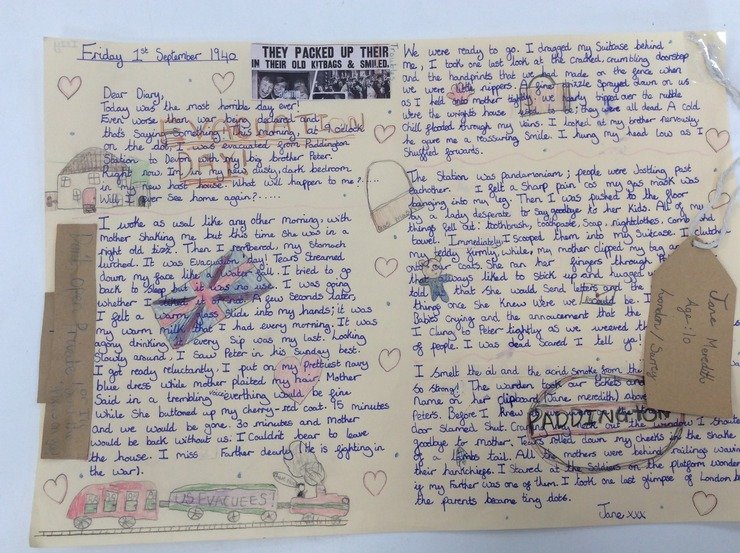 Friday 1st September 1940
THEY PACKED UP THEIR
IN THEIR OLD KITBAGS & SMILED.
Dear Diary,
Today was the most horrible day ever!
Even worse than war being declared and
that's saying something. This morning, at 9 o'clock
on the dot, I was evacuated from Paddington
Station to Devon with my big brother Peter.
Right now, I'm in my dusty, dark bedroom
in my new host house. What will happen to me?.....
Will I ever see home again?.....
EVACUATION
DAY!
I woke as usal like any other morning: with
mother shaking me but this time she was in a
right old tizz. Then I rembered, my stomach
lurched. It was Evacuation day! Tears streamed
down my face like a water fall. I tried to go
back to sleep but it was no use. I was going
whether I liked it or not. A few seconds later,
I felt a warm glass slide into my hands; it was
my warm milk that I had every morning. It was
agony drinking it every sip was my last. Looking
slowly around, I saw Peter in his Sunday best.
I got ready reluctantly. I put on my prettiest navy
blue dress while mother plaited my hair. Mother
said in a trembling voice everything would be fine
while she buttoned up my cherry-red coat. 15 minutes
and we would be gone. 30 minutes and Mother
would be back without us. I couldn't bear to leave
the house. I miss Farther dearly (He is fighting in
the war).
US EVACUEES!
We were ready to go. I dragged my suitcase behind
me; I took one last look at the cracked, crumbling doorstep
and the handprints that we had made on the fence when
we were little nippers. A fine drizzle sprayed down on us
as I held onto mother tightly; we nearly tripped over the rubble
were the wrights house used to be; they were all dead. A cold
chill flooded through my veins. I looked at my brother nervously,
he gave me a reassuring smile. I hung my head low as I
shuffled forwards.
The Station was pandamoniam; people were jostling past
eachother. I felt a sharp pain as my gas mask was
banging into my leg. Then I was pushed to the floor
by a lady desperate to say goodbye to her kids. All of my
things fell out: toothbrush, toothpaste, soap, nightclothes, comb and
towel. Immediately I scooped them into my suitcase. I clutch
my teddy firmly, while, my mother clipped my tag on
our coats. She ran her fingers through
that always liked to stick up and hugged u
told that she would send letters and the
things once she knew were we would be. I
Babies crying and the annoucement that the
I clung to Peter tightly as we weaved th
of people. I was dead scared I tell ya!
I smelt the oil and the acrid smoke from the
so strong! The warden took our tickets and
name on her clipboard (Jane meredith) above
Peters. Before I knew
door slammed shut. out the window I shouted
goodbye to mother. Tears rolled down my cheeks in the shake
of a lambs tail. All the mothers were behind railings waving
their hanhchiefs. I stared at the soldiers on the platform wonder
if my Farther was one of them. I took one last glimpse of London be
the parents became tiny dots.
Jane xxx
PADDINGTON
Jane Meredith
Age: 10
London / Surrey